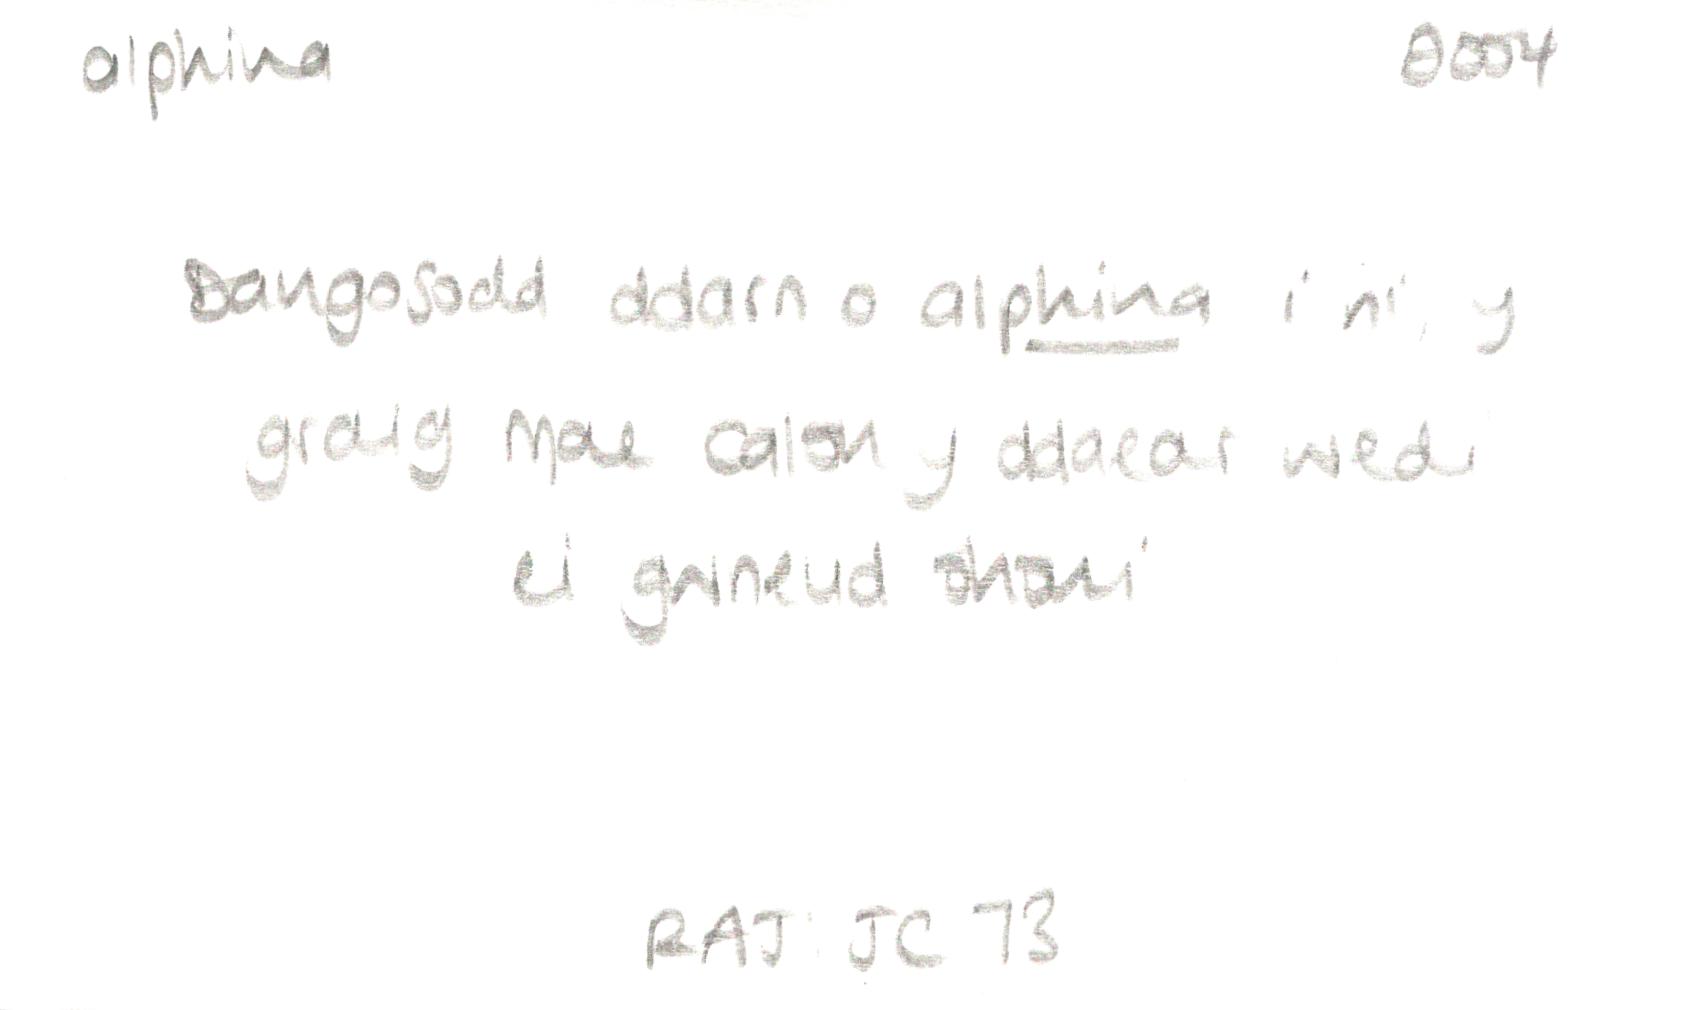 alphina 0004
Dangosodd ddarn o alphina i ni, y
graig mae calon y ddaear wedi
ei gwneud ohoni
RAJ: JC 73